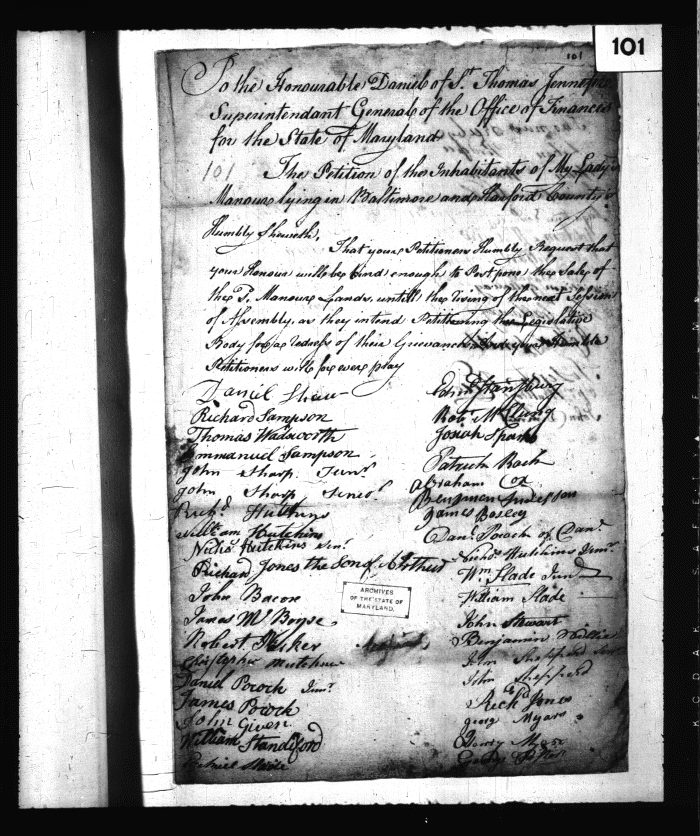 101
101
To the Honourable Daniel of St. Thomas Jennifer
Superintendant General of the Office of Finances
for the State of Maryland
101 The Petition of the Inhabitants of My Lady's
Manour lying in Baltimore and Harford County's
Humbly Sheweth,
That your Petitioners Humbly Request that
your Honour will be kind enough to Postpone the Sale of
the Sd. Manour Lands, untill the rising of the next Session
of Assembly, as they intend Petitioning the Legislative
Body for a redress of their Grievances your Humble
Petitioners will for ever pray
Daniel Shaw
Edmd Stansbury
Richard Sampson
Robt. McClung
Thomas Wadsworth
Josiah Sparks
Emmanuel Sampson
Patrick Rock
John Sharp Junr.
Abraham Cox
John Sharp Senior
Benjamen Anderson
Richd. Hutchins
James Bosley
William Hutchins
Danl. Pocock of Danl.
Nichs. Hutchins Senr.
Nichs. Hutchins Junr.
Richard Jones the Son of Arthur
Wm. Slade Jund
John Bacon
William Slade
ARCHIVES
OF THE STATE OF
MARYLAND.
James McBoyse
John Stewart
Robert
Benjamin
Christopher
John Shepperd
Daniel Pocock Junr.
John Shepperd
James Pocock
Richd Jones
John Given
georg Myars
William Standiford
Myars